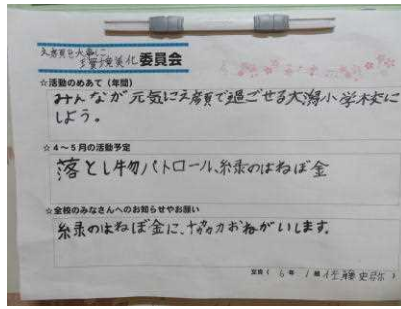 環境美化委員会
☆活動のめあて（年間）
みんなが元気に笑顔で過ごせる大潟小学校に
しよう。
☆4～5月の活動予定
落とし物パトロール、緑のはねぼ金
☆全校のみなさんへのお知らせやお願い
緑のはねぼ金に、おねがいします。
6年1組